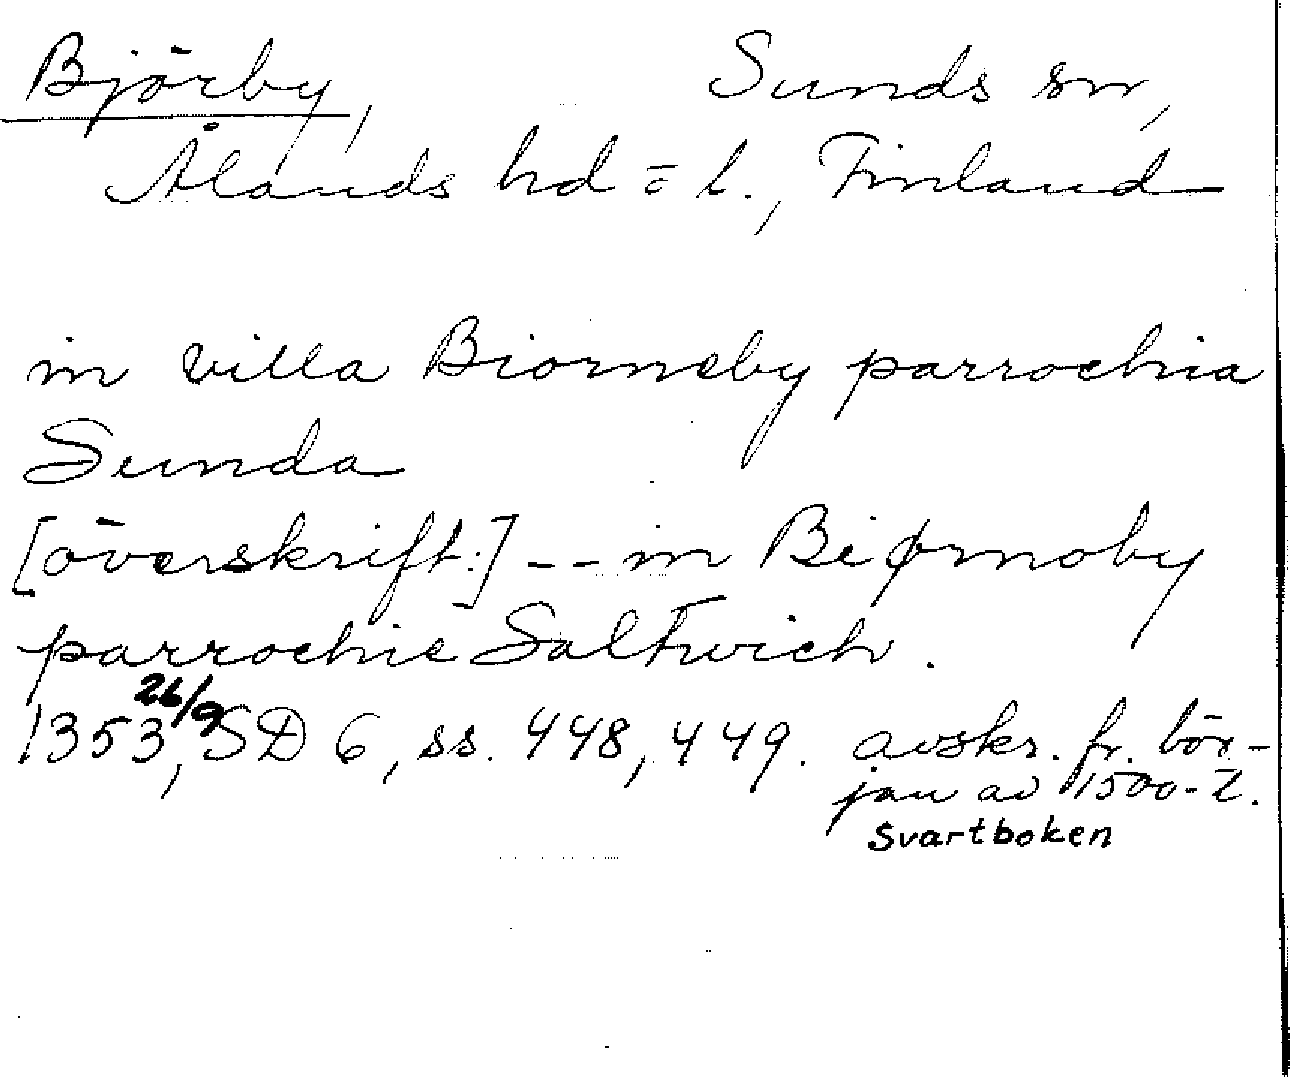 Björby, Sunds sn,
Ålands hd o l., Finland
in villa Biorneby parrochia
Sunda
[överskrift:] -- in Biørnoby
parrochie Saltwich.
1353 26/9, SD 6, ss. 448, 449. avskr. fr. bör-
jan av 1500-t.
Svartboken